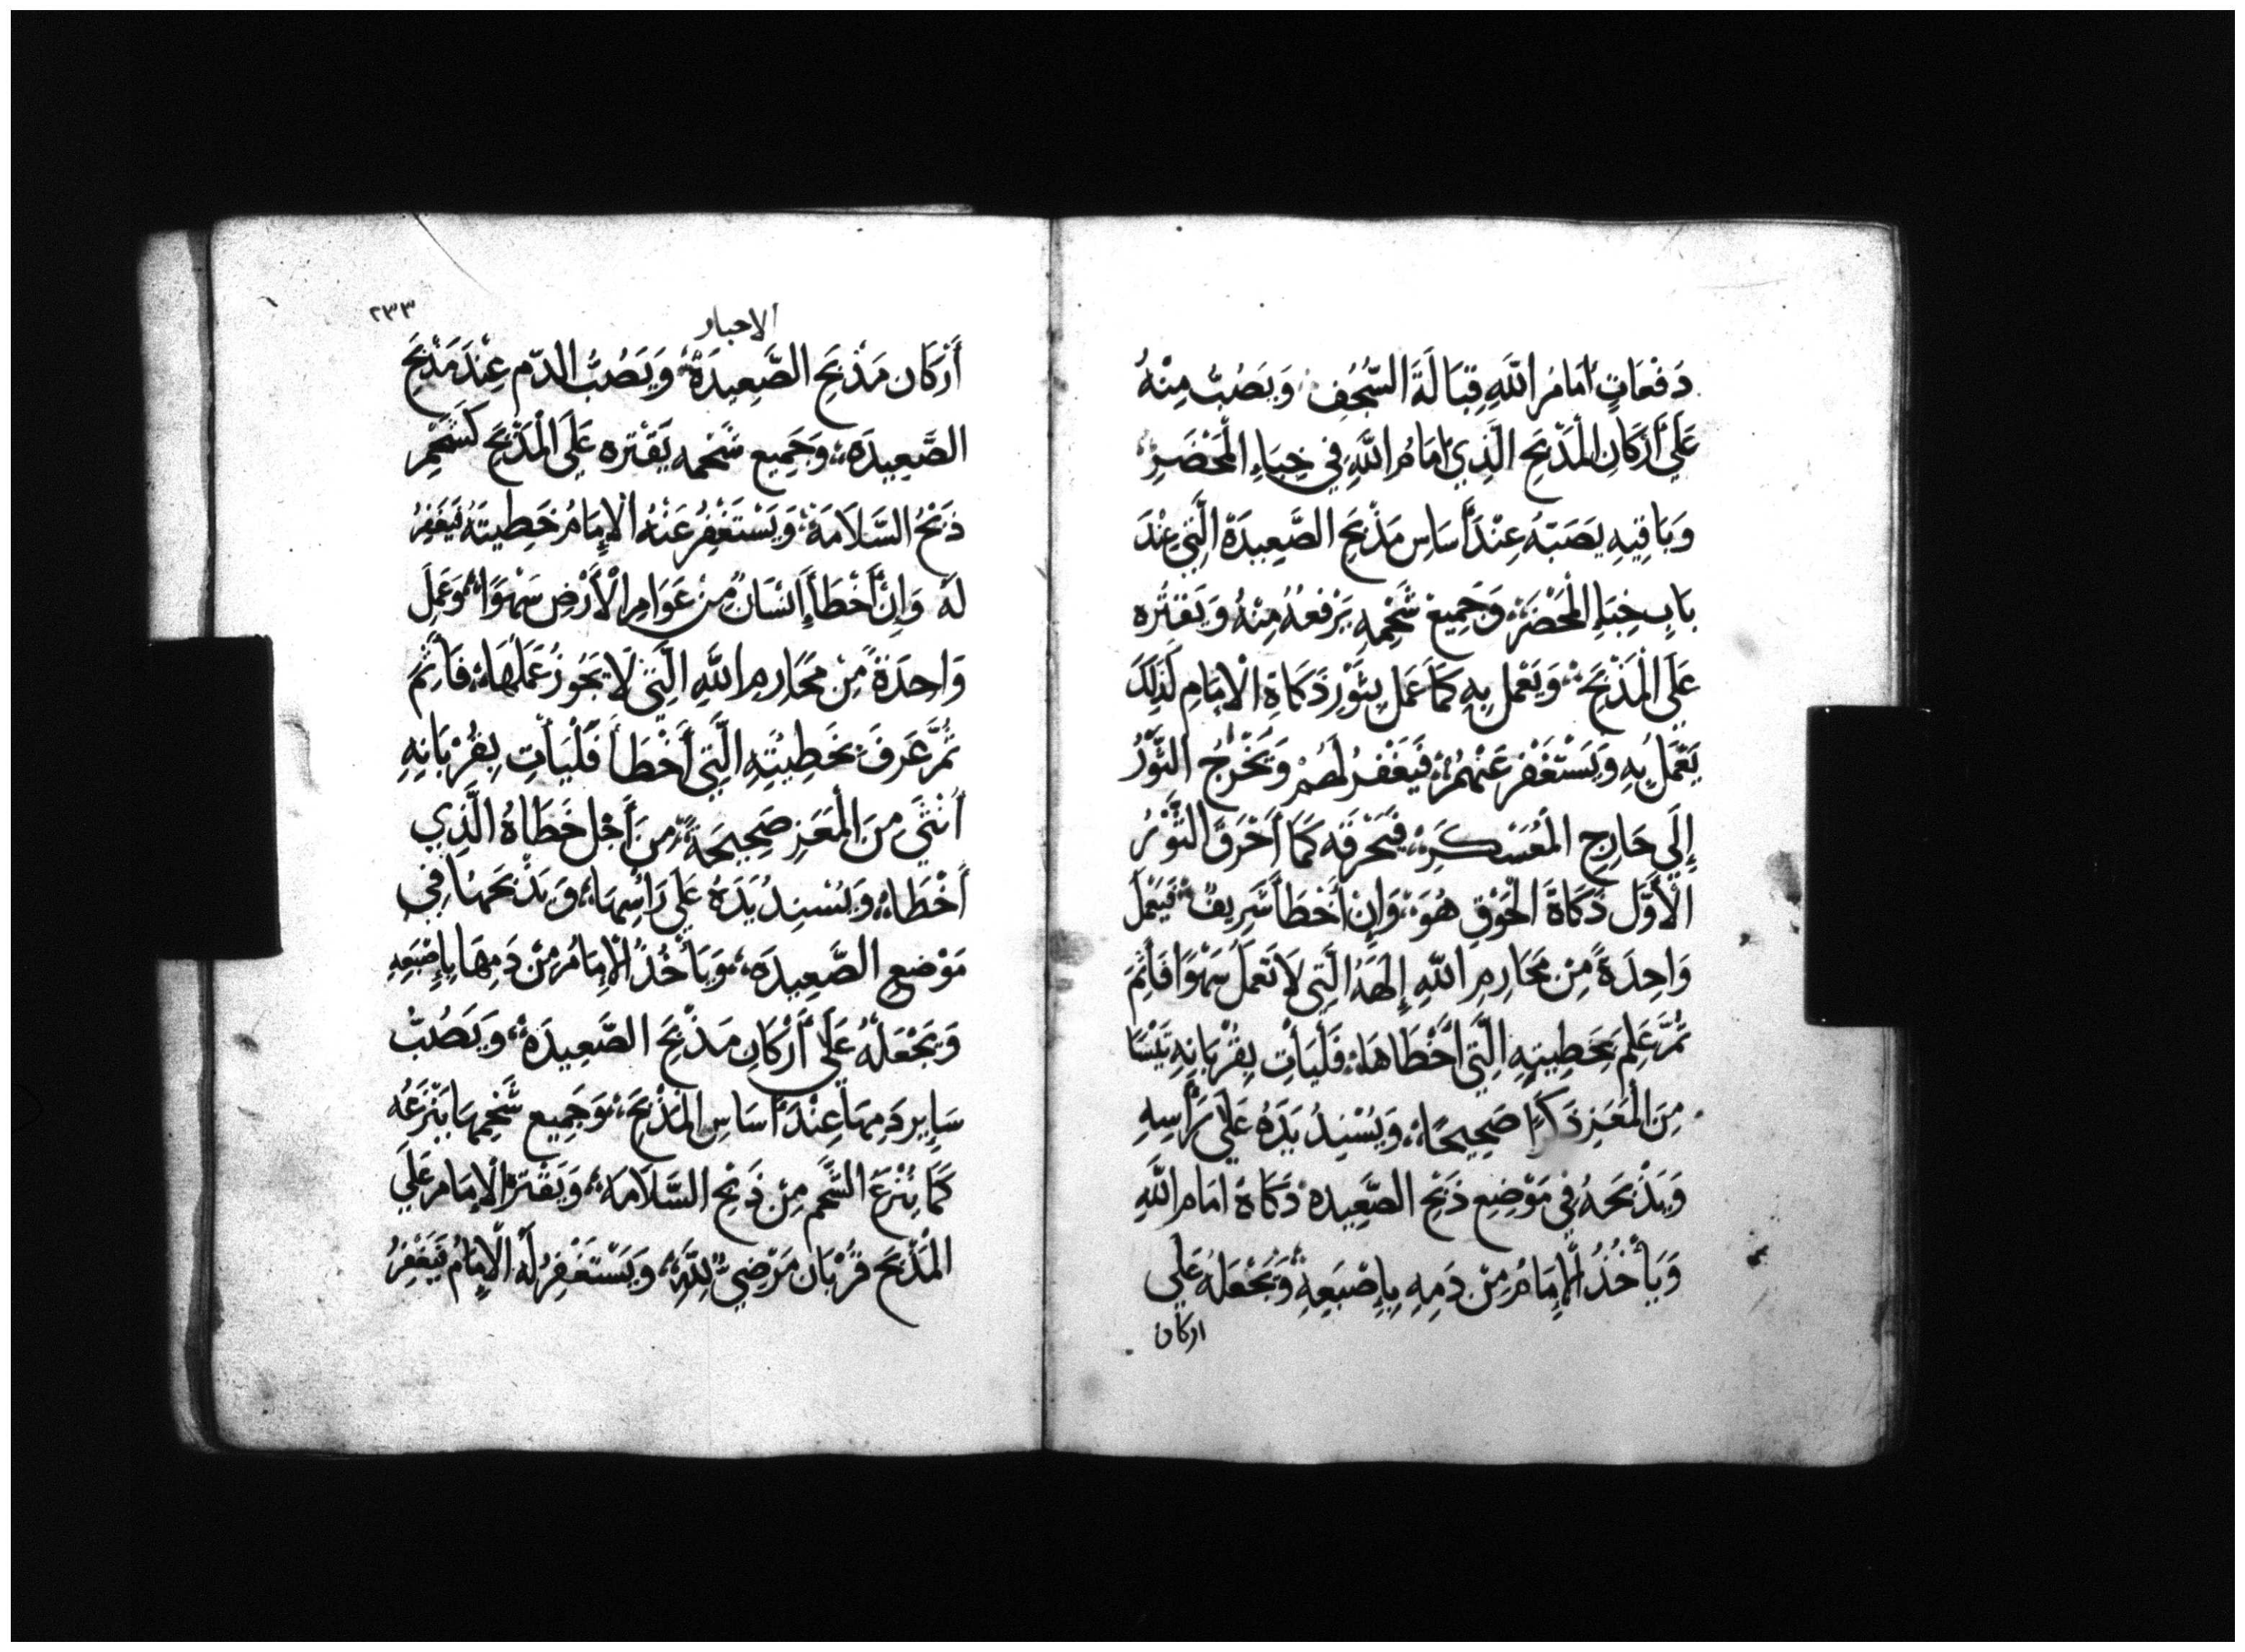 دَفعَاتٍ اَمَامُ اللهِ قِبَالَةَ السُّجُفِ وَيَصُبُّ مِنْهُ
عَلَى أَرْكَانِ الْمَذْبَحِ الَّذِي اَمَامُ اللهِ فِي خِبَاءِ الْمَحْضَرِ
وَبَاقِيهِ يَصَبّهُ عِنْدَ أَسَاسِ مَذْبَحِ الصَّعِيدَةْ الَّتِي عِنْدَ
بَابِ خِبَاءِ الْمَحْضَرْ وَجَمِيعْ شَحْمِهِ يَرْفَعُهُ مِنْهُ وَيَقتره
عَلَى الْمَذْبَحِ وَيَعْمل بِهِ كَمَا عَمل بِثَوْرِ ذَكَاةِ الْاِمَامِ كَذَلِكَ
يَعْمَلُ بِهِ وَيَسْتَغْفر عَنْهُمْ فَيَغْفرُ لَهُمْ وَيَخْرُجُ الثَّوْرُ
إِلَى خَارِجِ الْمُعَسْكَرِ فَيَحْرقه كَمَا أَحْرَقَ الثَّوْرُ
الْأَوَّل ذَكَاةَ الْجَوْقِ هُوَ وَإِنْ أَخْطَأَ شَرِيفٌ فَيَعْمَلْ
وَاحِدَةً مِنْ مَحَارِمِ اللهِ إِلَهَهُ الَّتِي لَا تَعمَلُ سَهْوًا فَأَثِمَ
ثُمَّ عَلِمَ بِخَطِيتِهِ الَّتِي أَخْطَاهَا فَلْيَأتِ بِقُرْبَانِهِ تَيْسًا
مِنَ الْمَعَزِ ذَكَرًا صَحِيحًا وَيُسْنِدُ يَدَهُ عَلَى رَأْسِهِ
وَيَذْبَحهُ فِي مَوْضِعِ ذَبْحِ الصَّعِيده ذَكَاةْ اَمَام اللهِ
وَيَأْخُذُ الْإِمَامُ مِنْ دَمِهِ بِإِصْبَعِهِ وَيَجْعَلهُ عَلَى
اركان
٢٣٣
الاحبار
أَرْكَان مَذْبَحِ الصَّعِيدَةْ وَيَصُبُّ الدّم عِنْدَ مَذْبَحِ
الصَّعِيدَه وَجَمِيع شَحْمه يَقتره عَلَى الْمَذْبَحِ كَشَحْمِ
ذَبْحُ السَّلَامَةْ وَيَسْتَغْفِرُ عَنْهُ الْإِمَامُ خَطِيتَهُ فَيَغْفِرُ
لَهْ وَإِنْ أَخْطَأَ إِنْسَانٌ مِنْ عَوَامِ الْأَرْضِ سَهْوًا وَعَمِلَ
وَاحِدَةً مِنْ مَحَارِمِ اللهِ الَّتِي لَا يَجُوزُ عَمَلَهَا فَأَثِمَ
ثُمَّ عَرَفَ بخَطِيئتِهِ الَّتِي أَخْطَأَ فَلْيَأتِ بِقُرْبَانِهِ
أُنْثَى مِنَ الْمَعَزِ صَحِيحَةً مِنَ أَجْل خَطَاهُ الَّذِي
أَخْطَاهُ وَيُسْنِدُ يَدَهُ عَلَى رَاسِهَا وَيَذْبَحهَا فِي
مَوْضِع الصَّعِيدَه وَيَأْخُذُ الْإِمَامُ مِنْ دَمِهَا بِإِصْبَعِهِ
وَيَجْعَلُهُ عَلَى أَرْكَانِ مَذْبَحِ الصَّعِيدَةْ وَيَصُبُّ
سَاير دَمِهَا عِنْدَ أَسَاسِ الْمَذْبَحِ وَجَمِيع شَحْمِهَا يَنْزَعُه
كَمَا يُنْزَعَ الشَّحْم مِنْ ذَبْحِ السَّلَامَه وَيَقْترْ الْاِمَام عَلَى
الْمَذْبَح قُرْبَان مَرْضِيّ لِلَّهِ وَيَسْتَغْفِرُ لَهُ الْإِمَامُ فَيَغْفِرُ